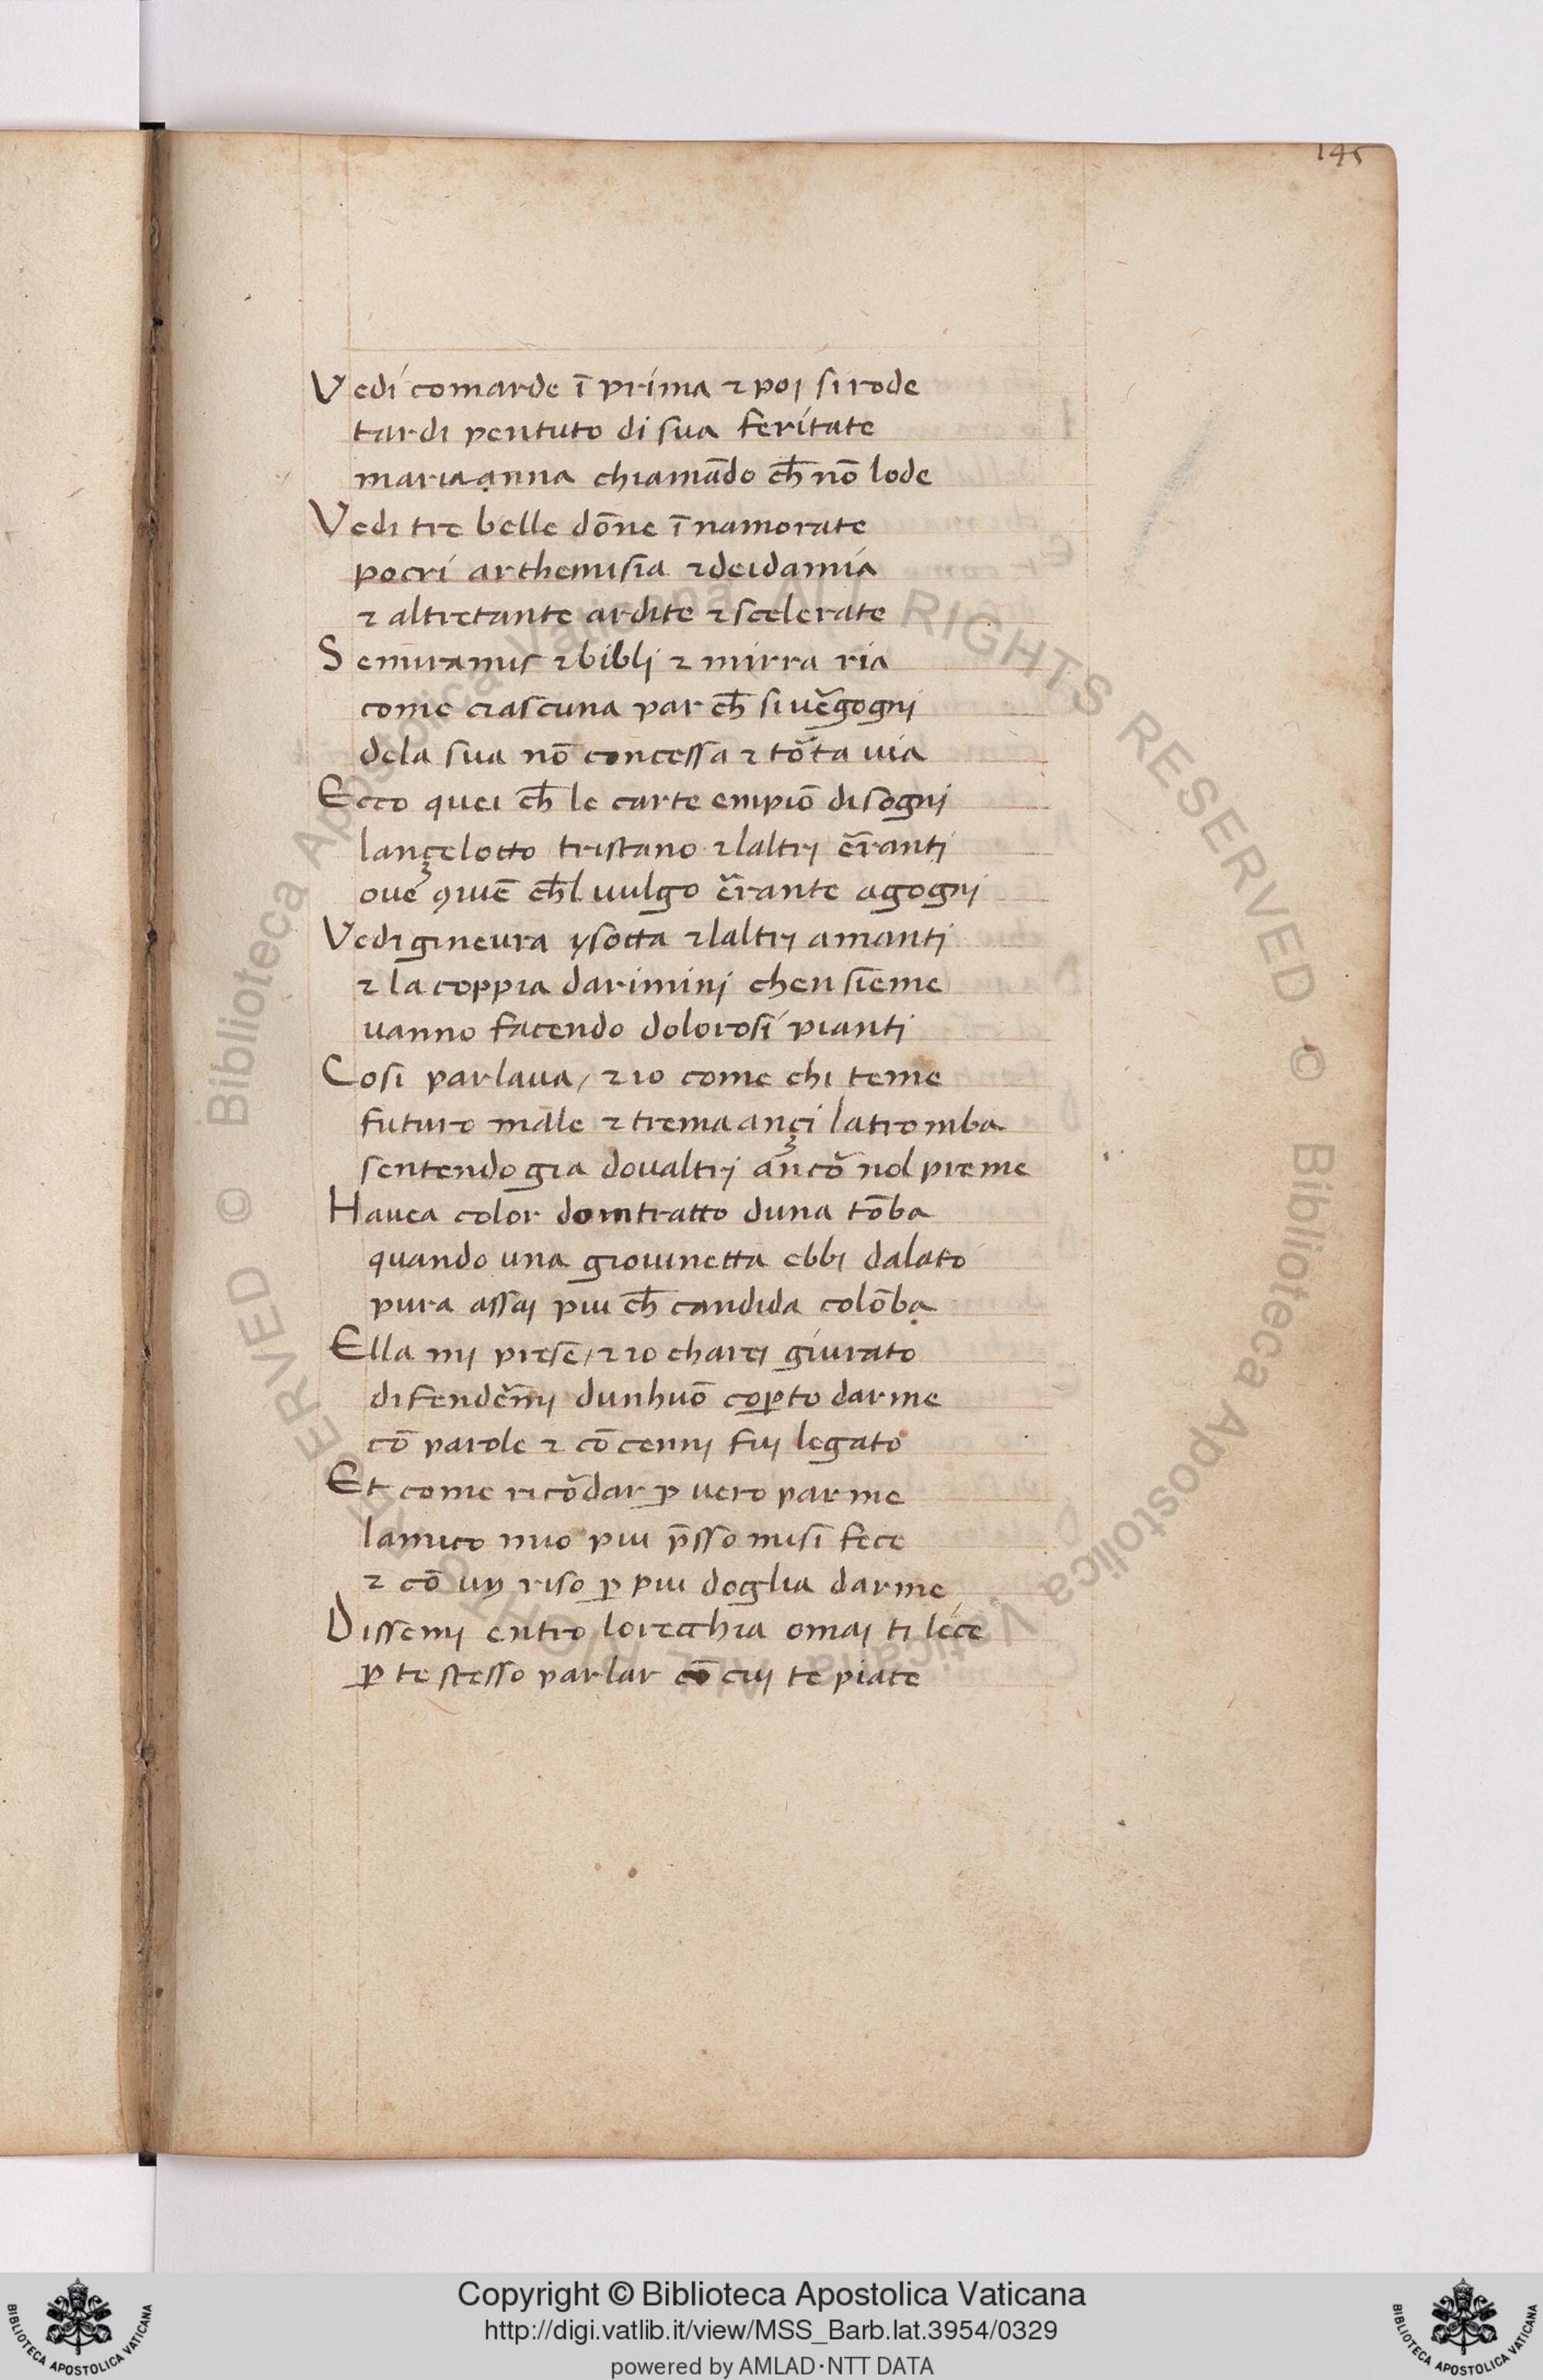 145
Vedi comarde ī prima ⁊ poi si rode
tardi pentuto di sua feritate
maria anna chiamādo ch̄ nō lode
Vedi tre belle dōne ī namorate
pocri arthemisia ⁊ deidamia
⁊ altretante ardite ⁊ scelerate
Semiramis ⁊ bibli ⁊ mirra ria
come ciascuna par ch̄ si uẽgogni
dela sua nō concessa ⁊ tõta uia
Ecco quei ch̄ le carte empiō di sogni
lançelotto tristano ⁊ laltri ẽranti
oue ꝯuiē ch̄l uulgo ẽrante agogni
Vedi gineura ysotta ⁊ laltri amanti
⁊ la coppia darimini chensieme
uanno facendo dolorosi pianti
Cosi parlaua / ⁊ io come chi teme
futuro male ⁊ trema ançi la tromba
sentendo gia doualtri ancõ nol preme
Hauea color domtratto duna tōba
quando una giouinetta ebbi dalato
pura assai piu ch̄ candida colōba
Ella mi prese / ⁊ io charei giurato
difendẽmi dunhuō coꝑto darme
cō parole ⁊ cō cenni fui legato
Et come ricõdar ꝑ uero parme
lamico mio piu p̄sso misi fece
⁊ cō uɳ riso ꝑ piu doglia darme
Dissemi entro lorecchia omai ti lece
ꝑ te stesso parlar cō cui te piace
Copyright © Biblioteca Apostolica Vaticana
http://digi.vatlib.it/view/MSS_Barb.lat.3954/0329
powered by AMLAD·NTT DATA
BIBLIOTECA APOSTOLICA VATICANA
BIBLIOTECA APOSTOLICA VATICANA
© Biblioteca Apostolica Vaticana ALL RIGHTS RESERVED © Biblioteca Apostolica Vaticana ALL RIGHTS RESERVED